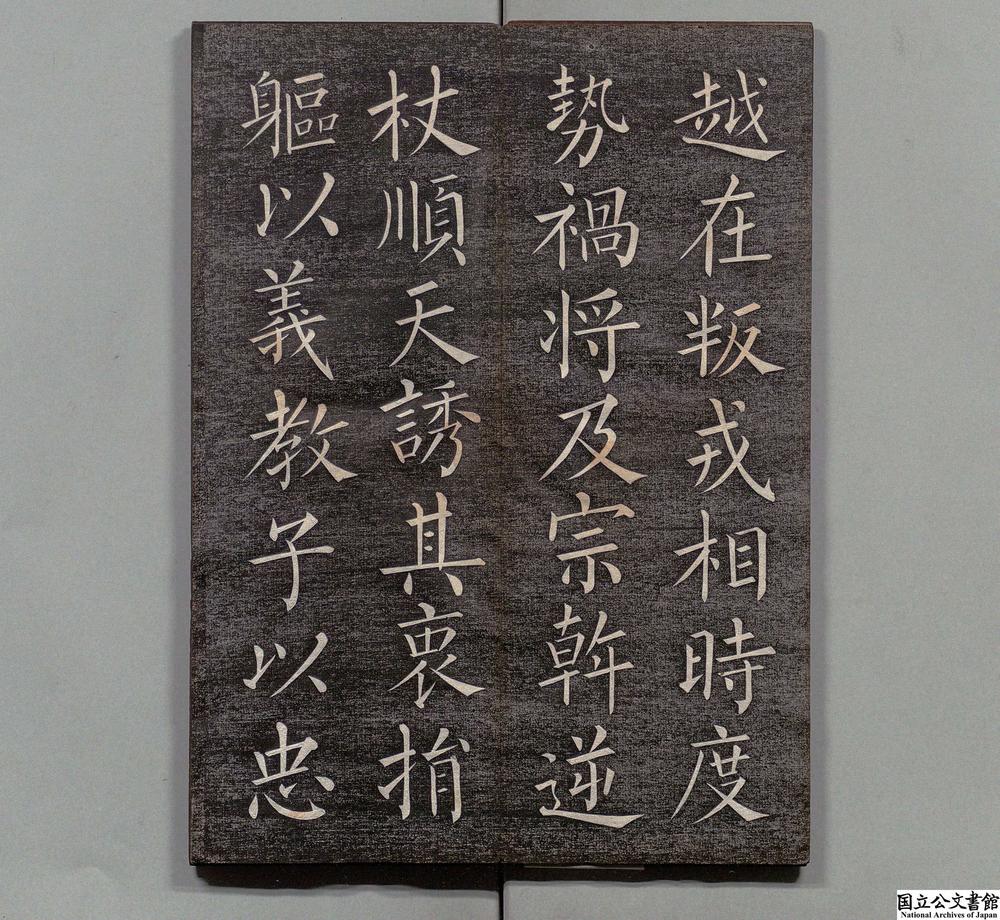 越在叛戎相時度
勢禍将及宗幹逆
杖順天誘其衷捐
軀以義教子以忠
国立公文書館
National Archives of Japan